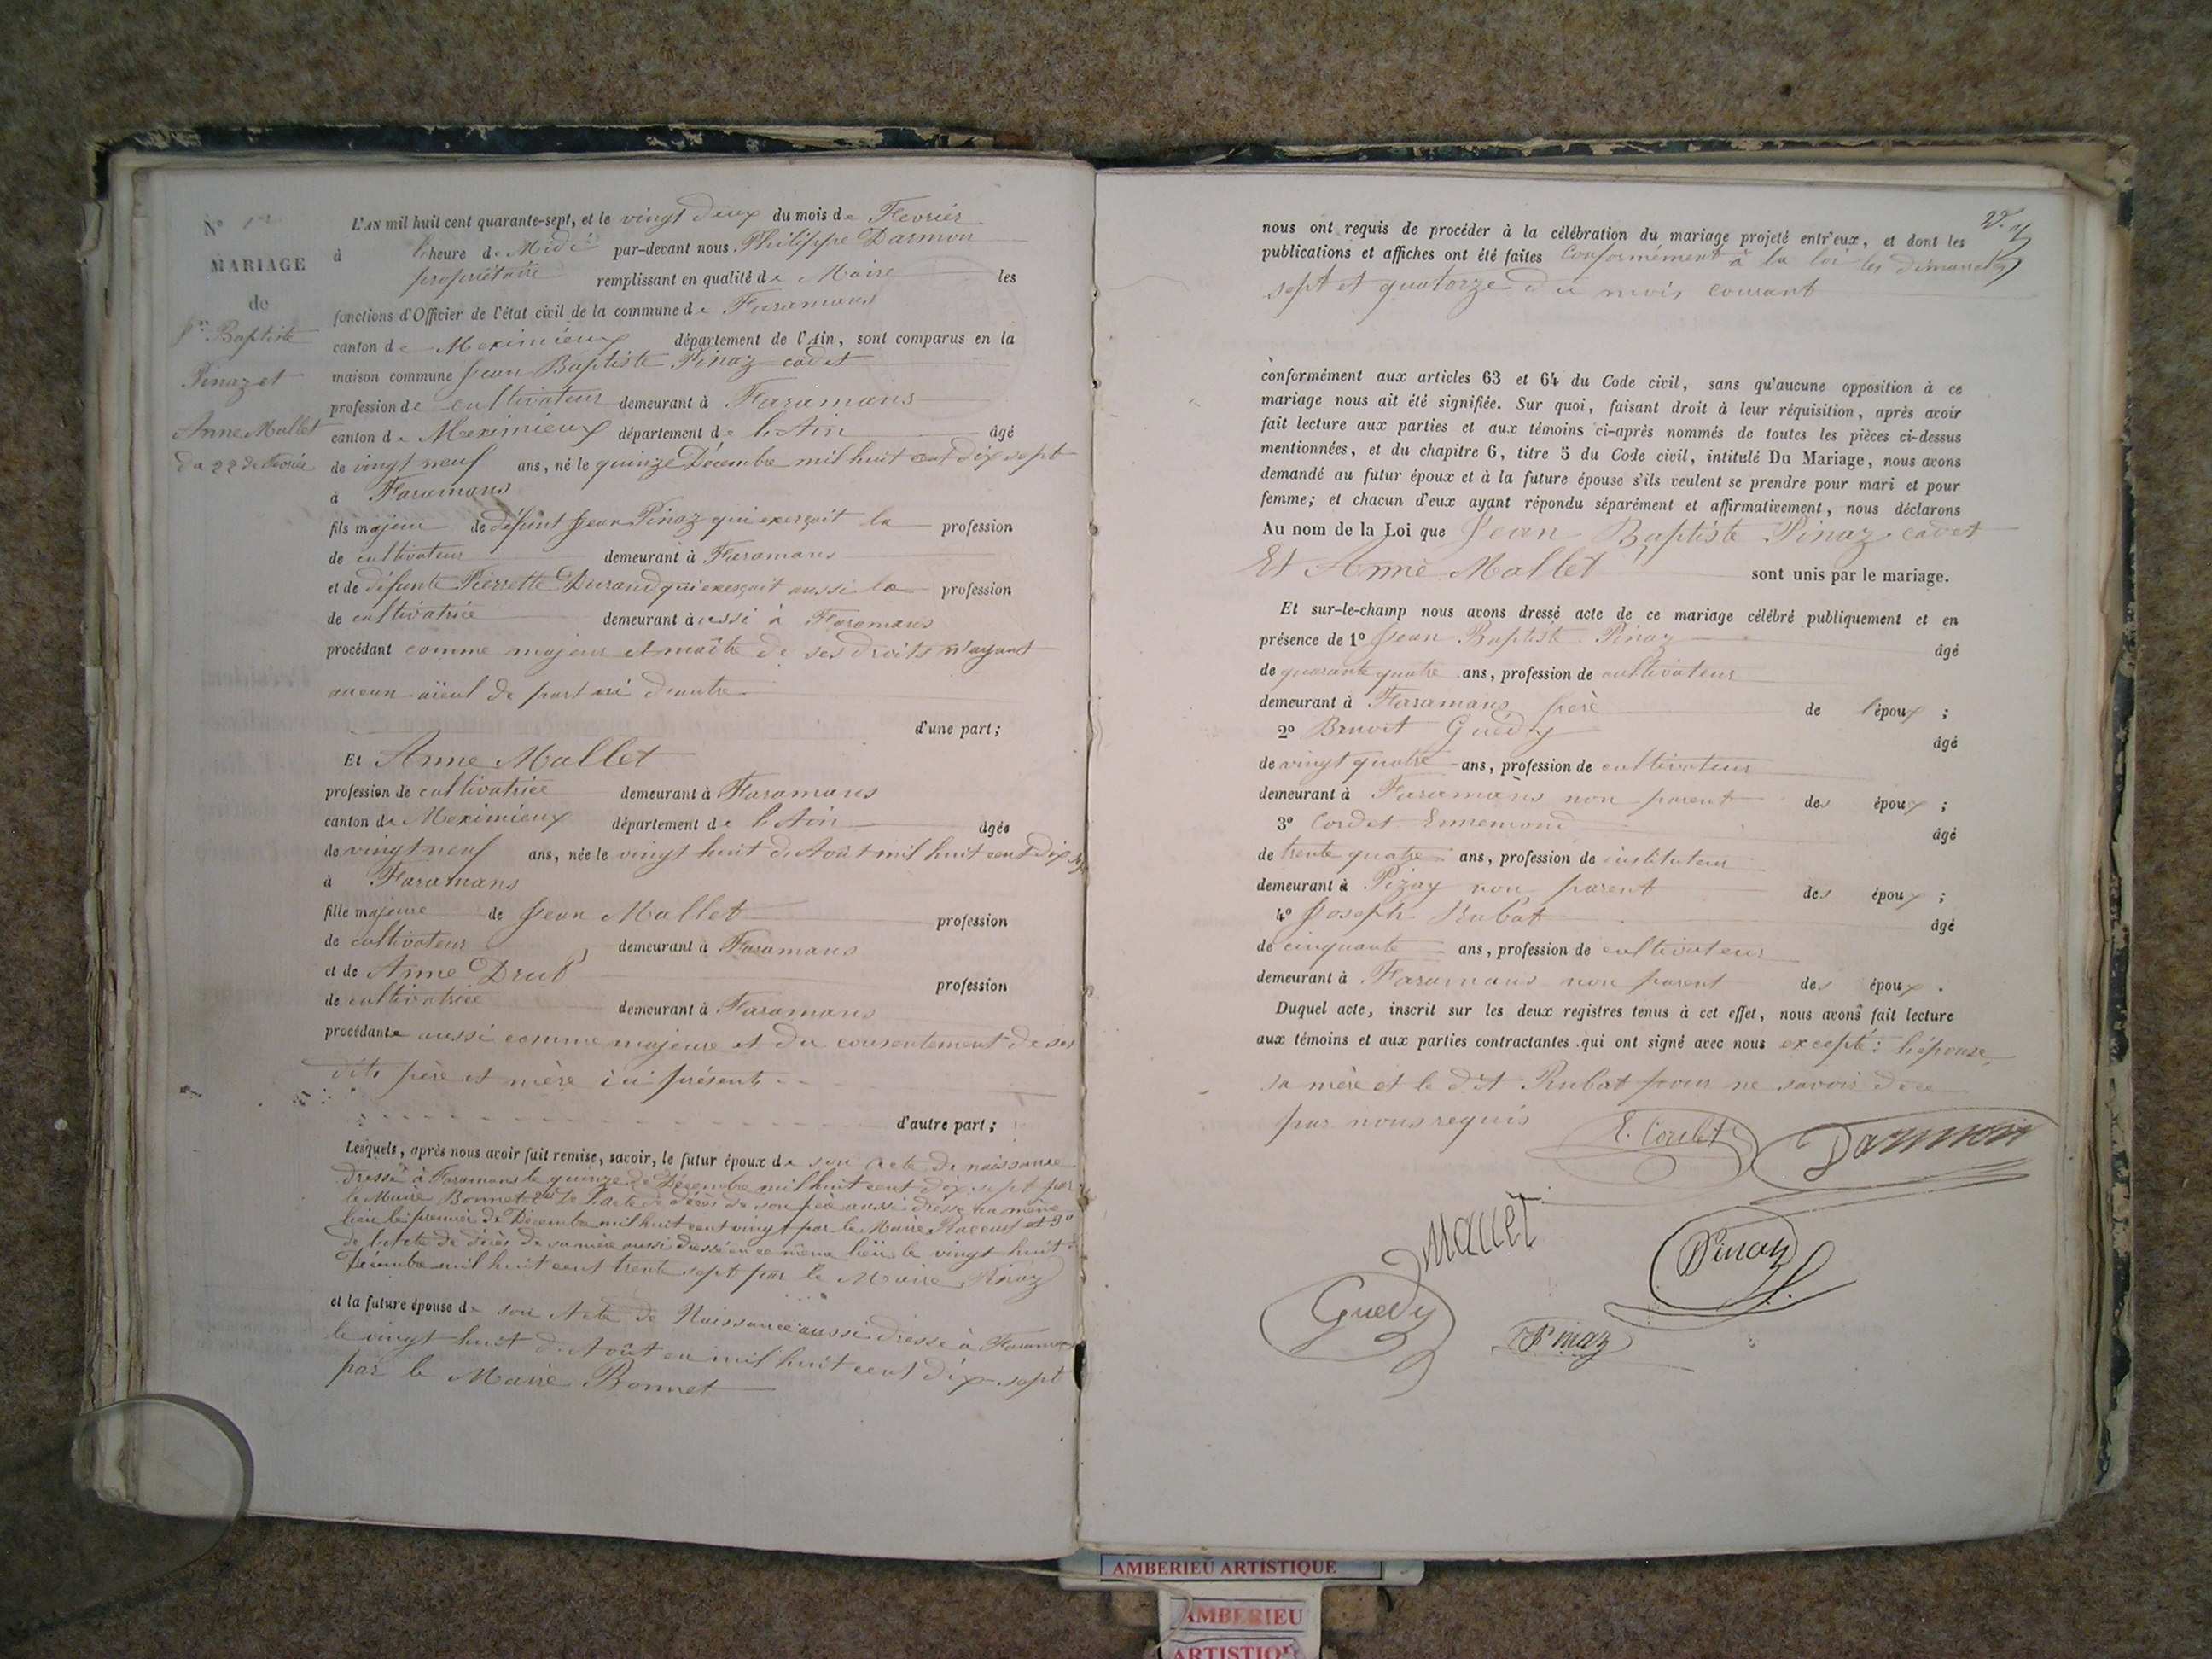 N°
MARIAGE
de
Jn Baptiste
Pinaz et
Anne Mallet
du 22 de Fevrier
L'AN mil huit cent quarante-sept, et le vingt deux du mois de Fevrier
à l'heure de Midi par-devant nous Philippe Darmon
propriétaire remplissant en qualité de Maire les
fonctions d'Officier de l'état civil de la commune de Faramans
canton de Meximieux département de l'Ain, sont comparus en la
maison commune Jean Baptiste Pinaz cadet
profession de cultivateur demeurant à Faramans
canton de Meximieux département de l'Ain âgé
de vingt neuf ans, né le quinze Décembre mil huit cent dix sept
à Faramans
fils majeur de défunt Jean Pinaz qui exerçait la profession
de cultivateur demeurant à Faramans
et de défunte Pierrette Durand qui exerçait aussi la profession
de cultivatrice demeurant aussi à Faramans
procédant comme majeur et maître de ses droits n'ayant
aucun aïeul de part ni d'autre
d'une part;
Et Anne Mallet
profession de cultivatrice demeurant à Faramans
canton de Meximieux département de l'Ain âgée
de vingt neuf ans, née le vingt huit d'Août mil huit cent dix sept
à Faramans
fille majeure de Jean Mallet profession
de cultivateur demeurant à Faramans
et de Anne Drut profession
de cultivatrice demeurant à Faramans
procédante aussi comme majeure et du consentement de ses
dits père et mère ici présents
d'autre part;
Lesquels, après nous avoir fait remise, savoir, le futur époux de son acte de naissance
dressé à Faramans le quinze de Décembre mil huit cent dix sept par
le Maire Bonnet 2° de l'acte de décès de son père aussi dressé au même
lieu le premier de Décembre mil huit cent vingt par le Maire et 3°
de l'Acte de décès de sa mère aussi dressé en ce même lieu le vingt huit
Décembre mil huit cent trente sept par le Maire Pinaz
et la future épouse de son Acte de Naissance aussi dressé à Faramans
le vingt huit d'Août en mil huit cent dix sept
par le Maire Bonnet
nous ont requis de procéder à la célébration du mariage projeté entr'eux, et dont les
publications et affiches ont été faites Conformément à la loi les dimanches
sept et quatorze du mois courant
conformément aux articles 63 et 64 du Code civil, sans qu'aucune opposition à ce
mariage nous ait été signifiée. Sur quoi, faisant droit à leur réquisition, après avoir
fait lecture aux parties et aux témoins ci-après nommés de toutes les pièces ci-dessus
mentionnées, et du chapitre 6, titre 5 du Code civil, intitulé Du Mariage, nous avons
demandé au futur époux et à la future épouse s'ils veulent se prendre pour mari et pour
femme; et chacun d'eux ayant répondu séparément et affirmativement, nous déclarons
Au nom de la Loi que Jean Baptiste Pinaz cadet
Et Anne Mallet sont unis par le mariage.
Et sur-le-champ nous avons dressé acte de ce mariage célébré publiquement et en
présence de 1° Jean Baptiste Pinaz âgé
de quarante quatre ans, profession de cultivateur
demeurant à Faramans frère de l'époux ;
2° Benoit Guédy âgé
de vingt quatre ans, profession de cultivateur
demeurant à Faramans non parent des époux ;
3° Cordet Ennemond âgé
de trente quatre ans, profession de instituteur
demeurant à Pizay non parent des époux ;
4° Joseph Rubat âgé
de cinquante ans, profession de cultivateur
demeurant à Faramans non parent des époux .
Duquel acte, inscrit sur les deux registres tenus à cet effet, nous avons fait lecture
aux témoins et aux parties contractantes qui ont signé avec nous excepté : l'épouse,
sa mère et le dit Rubat pour ne savoir de ce
par nous requis
Darmon
Mallet
Pinaz
Guedy
Pinaz
AMBERIEU ARTISTIQUE
AMBERIEU
ARTISTIQUE